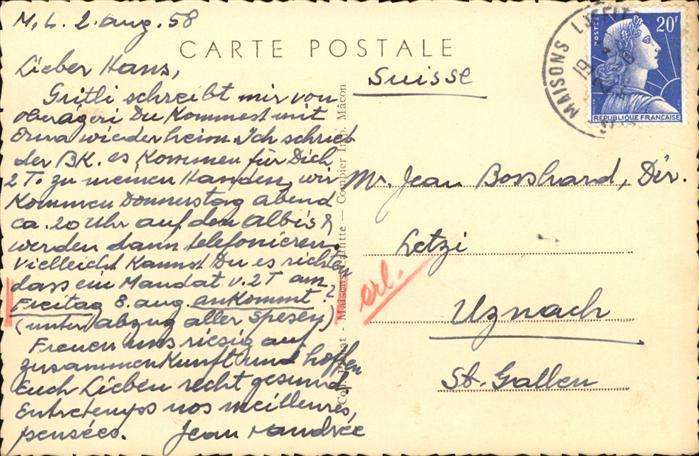 M. L. 2. aug. 58
CARTE POSTALE
Lieber Hans,
Gritli schreibt mir von
Oberägeri Du kommest mit
Oma wieder heim. Ich schrieb
der BK. es kommen für Dich
2 T. zu meinen Handen, wir
kommen Donnerstag abend
ca. 20 Uhr auf den Albis &
werden dann telefonieren.
Vielleicht kannst Du es richten
dass ein Mandat v. 2T am
Freitag 8. aug. ankommt?
(unter abzug aller Spesen)
Freuen uns riesig auf
zusammenkunft und hoffen
Euch Lieben recht gesund.
Entretemps nos meilleures
pensées. Jean
Combier Imp. Mâcon
Suisse
Mr. Jean Bosshard, Dir.
Letzi
Uznach
St. Gallen
erl.
MAISONS
POSTES
20F
REPUBLIQUE FRANÇAISE